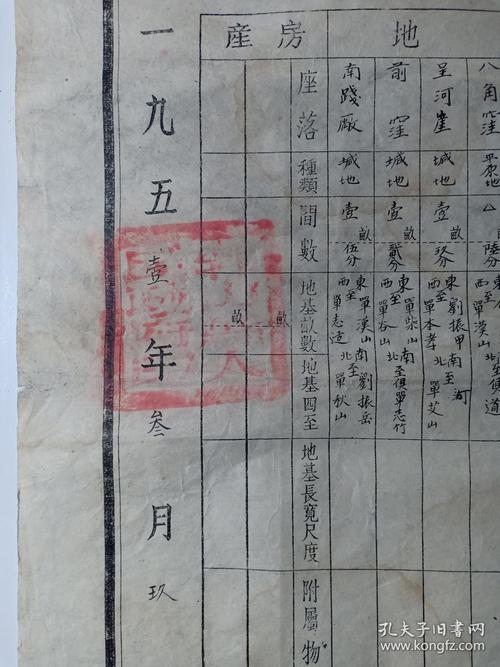 地
房產
八角窪
平原地
陸分
西單漢山 北至道
呈河崖
堿地
壹畝玖分
東劉振甲南至河
西至單本孝北單艾山
前窪
堿地
壹畝貳分
東至單柴山南至俱單志竹
西至單谷山北
南踐廠
堿地
壹畝伍分
東單漢山南劉振岳
西至單志造北至單秋山
座落
種類
間數
地基畝數
地基四至
地基長寬尺度
附屬物
畝
畝
一九五壹年叁月玖
孔夫子旧書网
www.kongfz.com